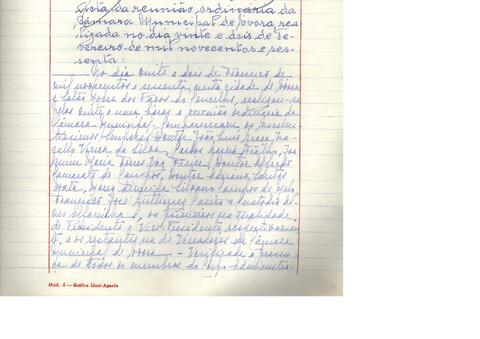 Acta da reunião ordinária da
Câmara Municipal de Évora, rea-
lizada no dia vinte e dois de fe-
vereiro de mil novecentos e ses-
senta:
No dia vinte e dois de Fevereiro de
mil novecentos e sessenta, nesta cidade de Évora
e Salão Nobre dos Paços do Concelho, realizou-se
pelas vinte e uma horas a reunião ordinária da
Câmara Municipal. Compareceram os Excelen-
tíssimos Senhores Doutor João Luís
Vieira da Silva, Carlos Maria
Maria Vaz Freire, Doutor Alfredo
de Campos, Doutor Mariano Santos
Mata, Mário Almeida Campos de
Francisco José Guilherme e Custódio
os primeiros na qualidade
de Presidente e Vice-Presidente respectivamen-
te, e os restantes na de Vereadores da Câmara
Municipal de Évora. - Verificada a presen-
ça de todos os membros do Corpo Administra-
Mod. 6 — Gráfica Ideal-Agueda